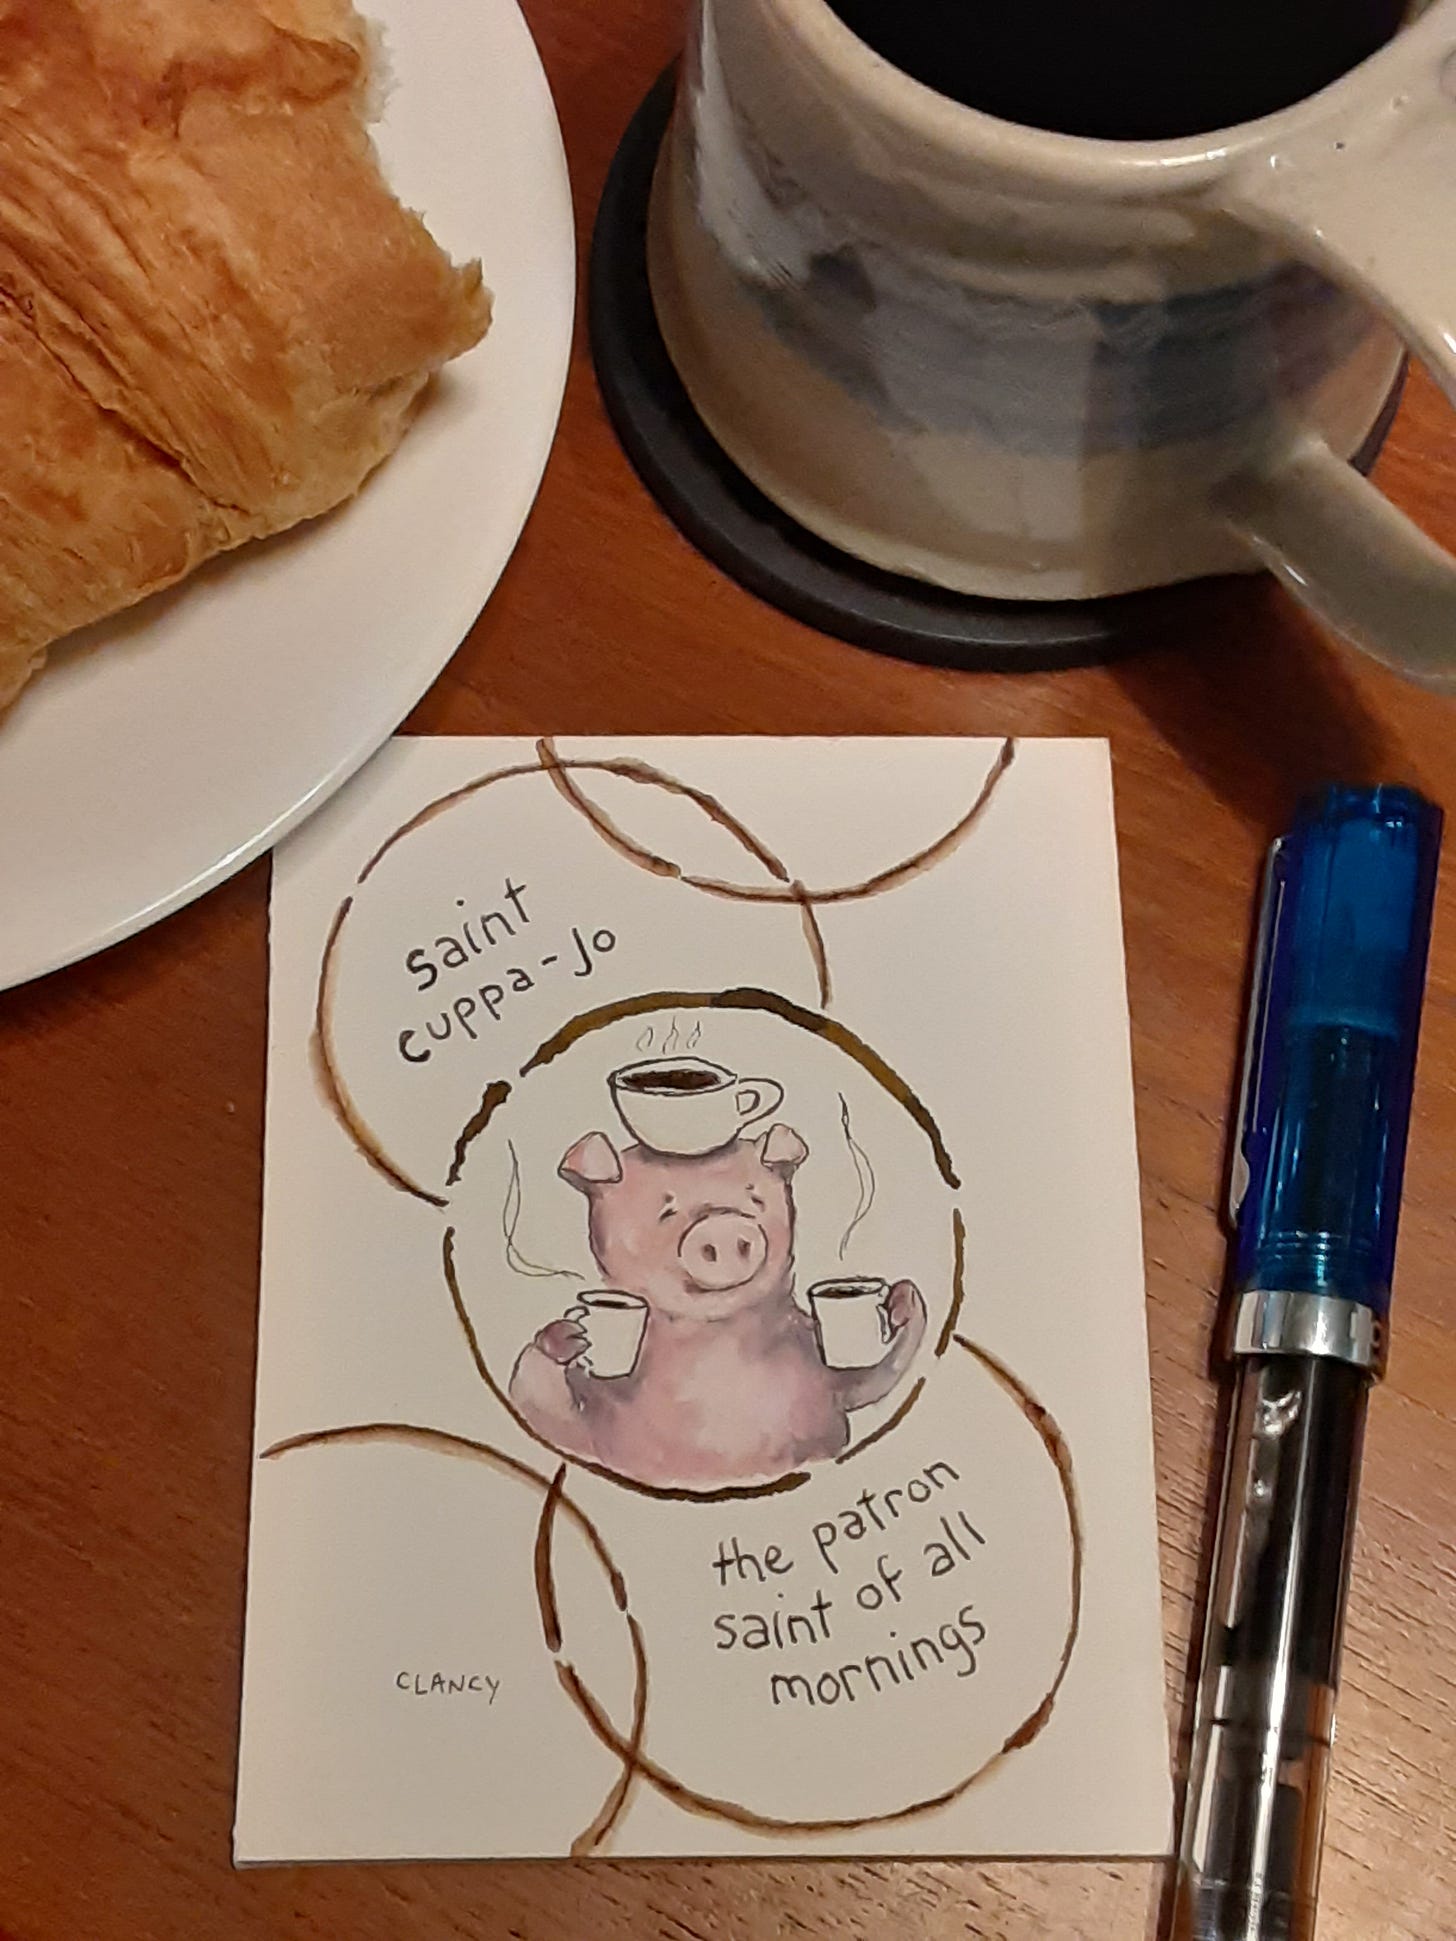 saint
cuppa-jo
the patron
saint of all
mornings
CLANCY